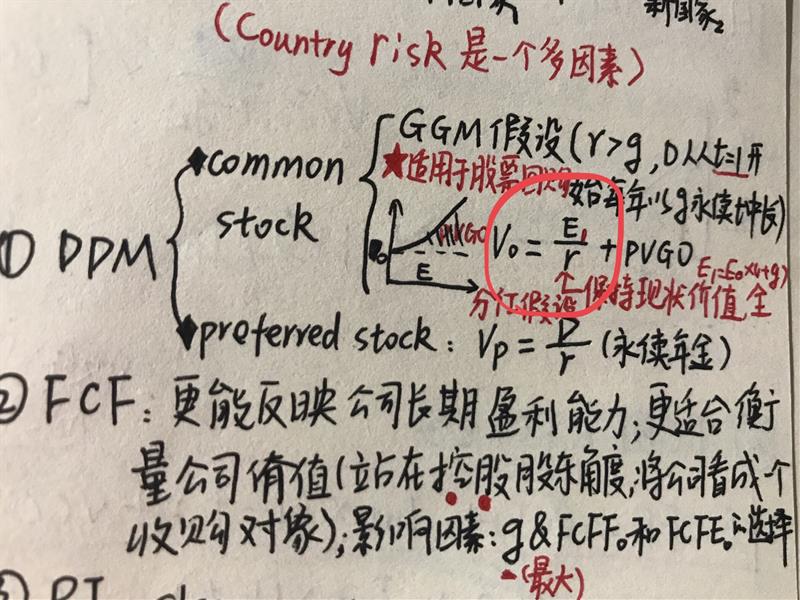 新国家。
(Country risk 是一个多因素)
GGM假设(r>g, D从t=1开
◆common
★适用于股票回购
始每年以g永续增长)
stock
PVGO
V₀ = E₁/r + PVGO
① DDM
E₁=E₀×(1+g)
E
保持现状价值,全
分红假设
◆preferred stock: Vp = D/r (永续年金)
② FCF: 更能反映公司长期盈利能力;更适合衡
量公司价值(站在控股股东角度,将公司看成一个
收购对象);影响因素: g & FCFF。和FCFE。的选择
(最大)